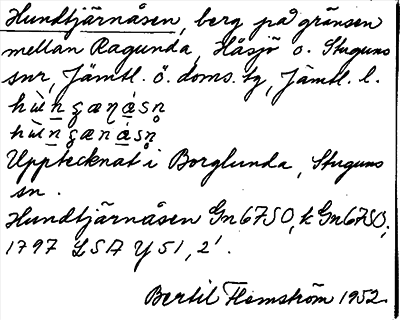 Hundtjärnåsen, berg på gränsen
mellan Ragunda, Häsjö o. Stuguns
snr, Jämtl. ö. doms. tg, Jämtl. l.
Upptecknat i Borglunda, Stuguns
sn.
Hundtjärnåsen Gn 67 SO, k Gn 67 SO,
1797 LSA Y 51, 2'.
Bertil Flemström 1952.